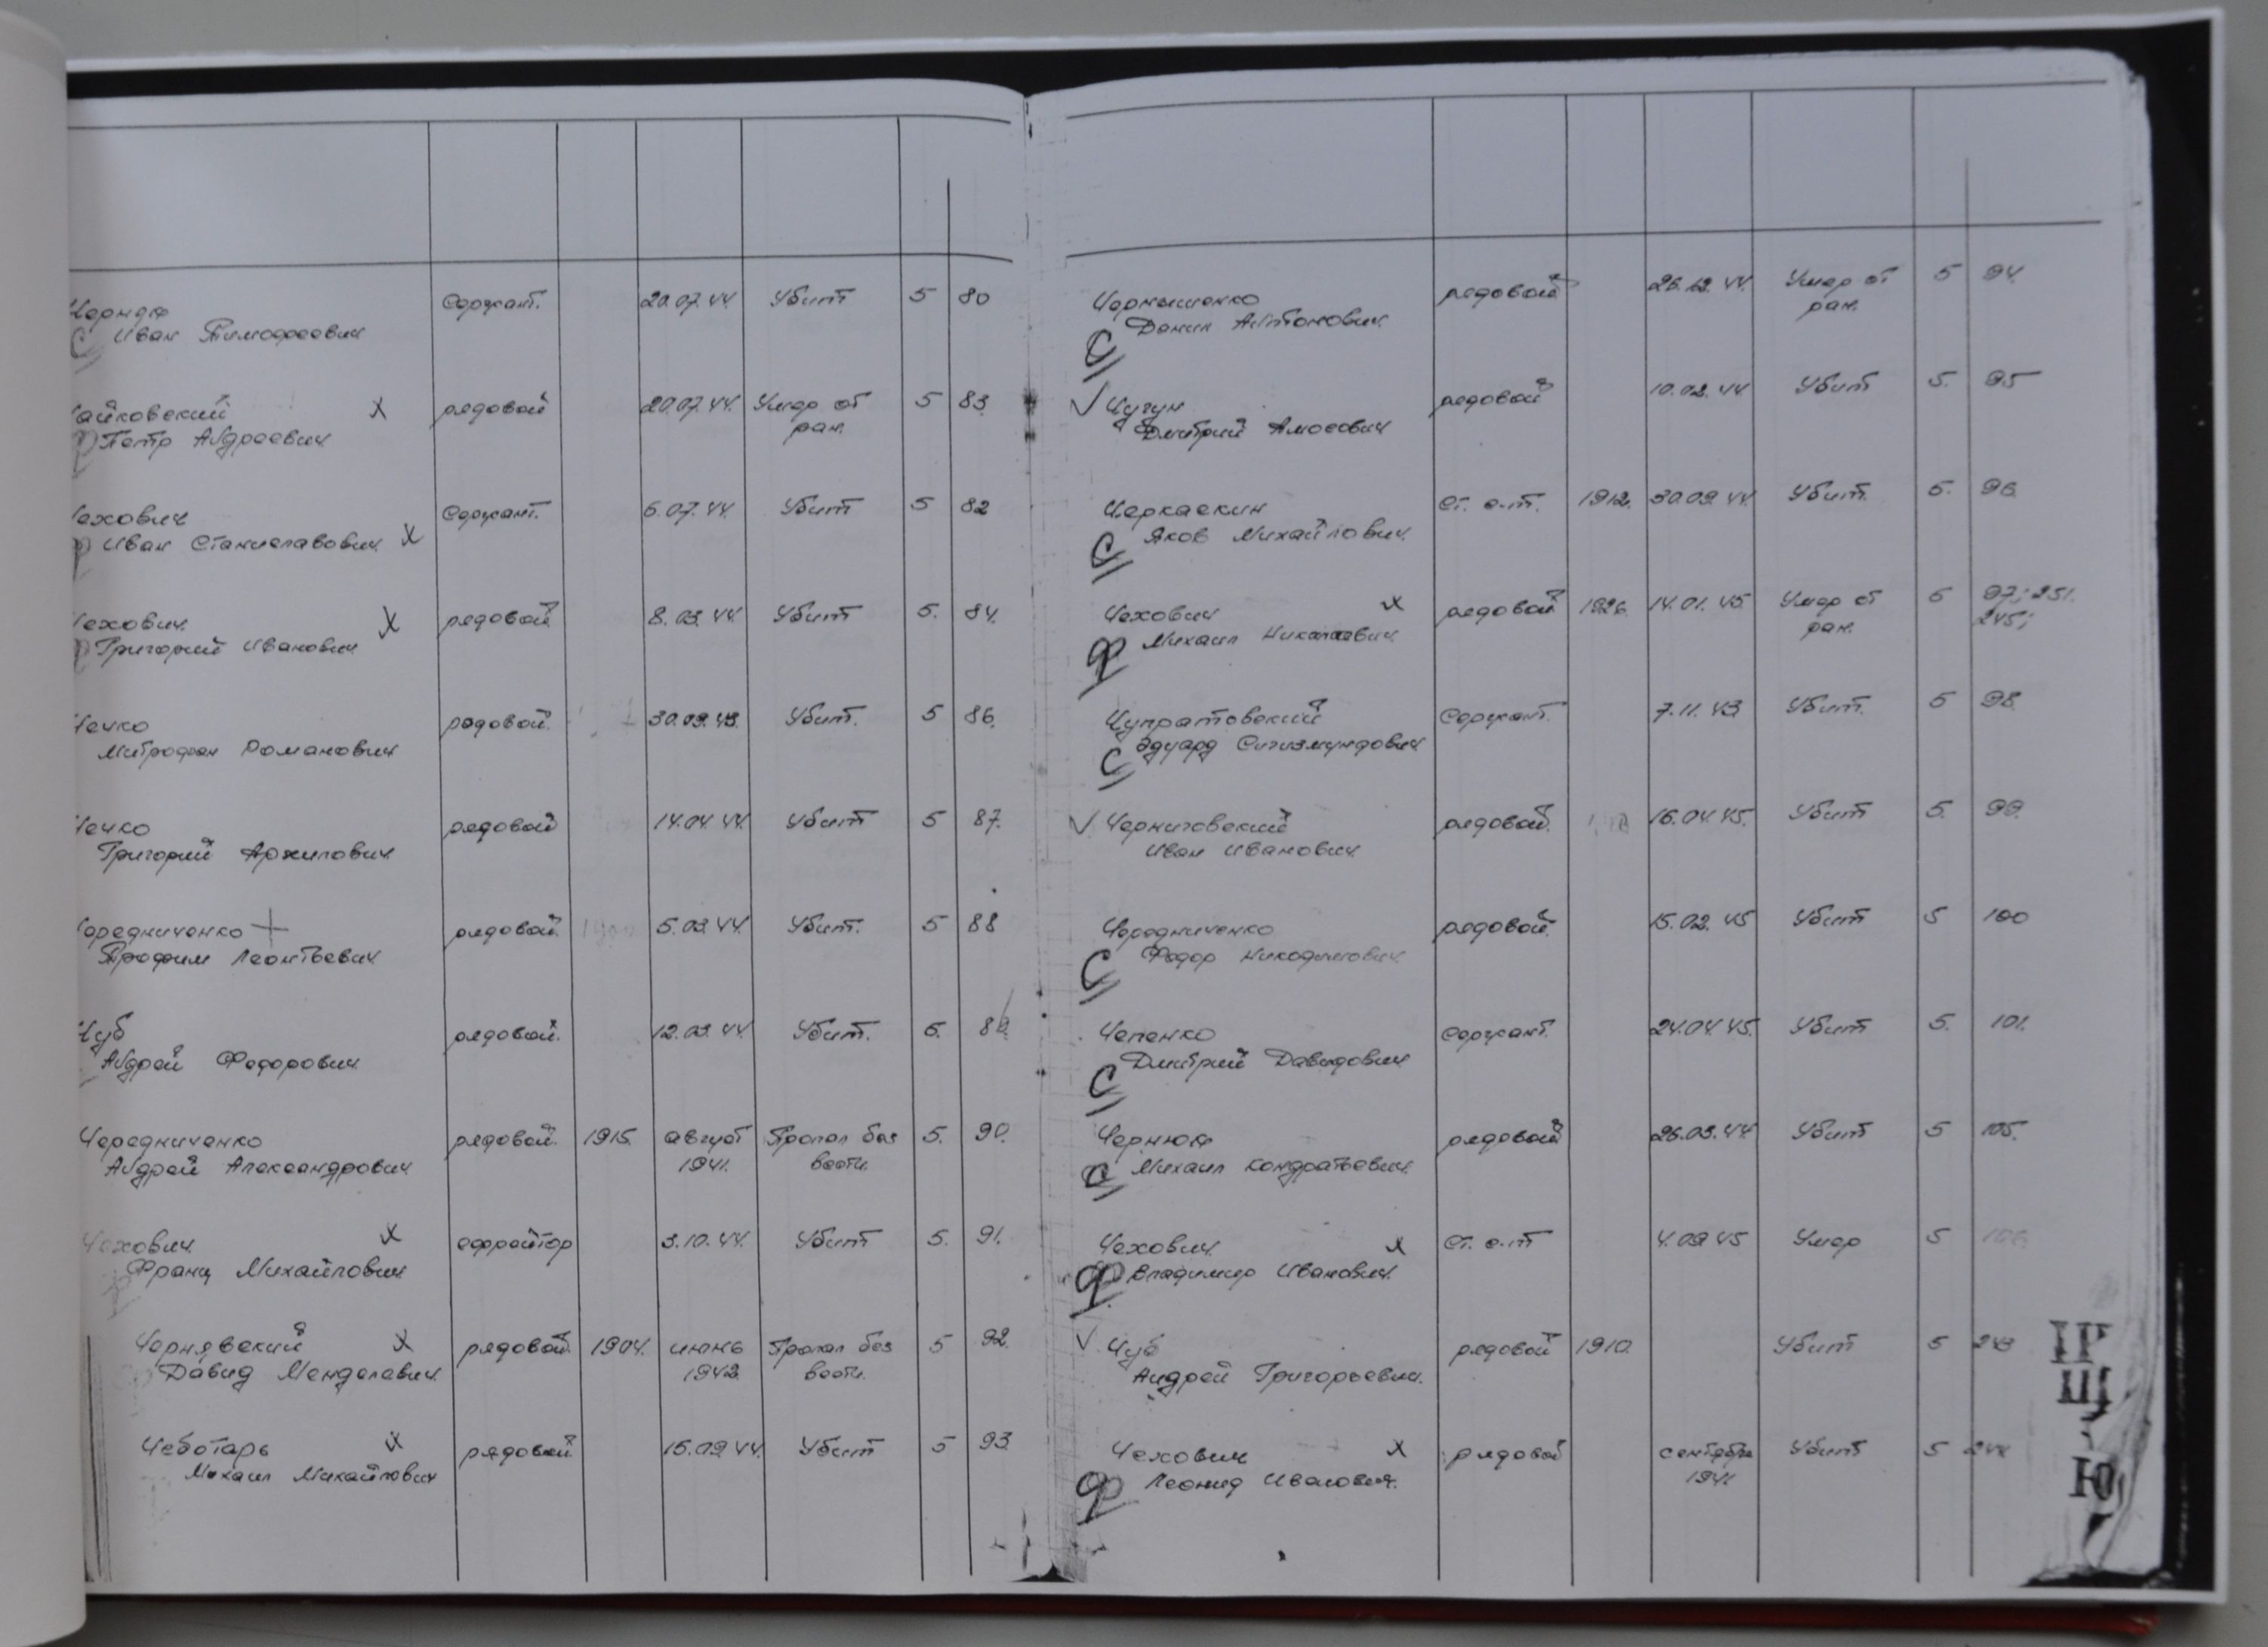 Иван Тимофеевич Сержант. 20.07.44. Убит 5 80
Чайковский х рядовой 20.07.44. Умер от 5 83.
Петр Андреевич ран.
Чехович Сержант. 6.07.44. Убит 5 82
Иван Станиславович х
Чехович х рядовой 8.03.44. Убит 5. 84.
Григорий Иванович
Чечко рядовой 30.09.43. Убит. 5 86.
Митрофан Романович
Чечко рядовой 14.04.44. Убит 5 87.
Григорий Архипович
Чередниченко + рядовой 5.03.44. Убит. 5 88
Трофим Леонтьевич
Чуб рядовой. 12.03.44. Убит. 5.
Андрей Федорович
Чередниченко рядовой 1915. август Пропал без 5. 90.
Андрей Александрович 1941. вести.
Чехович х ефрейтор 3.10.44. Убит 5. 91.
Франц Михайлович
Чернявский х рядовой 1904. июнь Пропал без 5 92.
Давид Менделевич 1942 вести.
Чеботарь х рядовой 15.09.44. Убит 5 93.
Михаил Михайлович
Чернышенко рядовой 44. Умер от 5 94.
С Данил Антонович ран.
√ Чугун рядовой 10.02.44. Убит 5. 95
Дмитрий Амосович
Черкаскин Ст. с-т. 1912. 30.09.44. Убит 5. 96.
С Яков Михайлович.
Чехович х рядовой 1926. 14.01.45. Умер от 5 97; 251.
Ф Михаил Николаевич ран. 245;
Чупратовский Сержант. 7.11.43 Убит. 5 98.
С Эдуард Сигизмундович
√ Черниговский рядовой. 16.04.45. Убит 5. 99.
Иван Иванович.
Чередниченко рядовой. 15.02.45 Убит 5 100
С Федор Никодимович.
Чепенко сержант. 24.04.45. Убит 5. 101.
С Дмитрий Давидович
Чернюк рядовой 26.03.44. Убит 5 105.
С Михаил Кондратьевич.
Чехович. х Ст. с-т 4.09.45 Умер 5
Ф Владимир Иванович.
√ Чуб рядовой 1910. Убит 5 243
Андрей Григорьевич.
Чехович х рядовой сентябрь Убит 5
Ф Леонид Иванович. 1941.
Щ
Ю